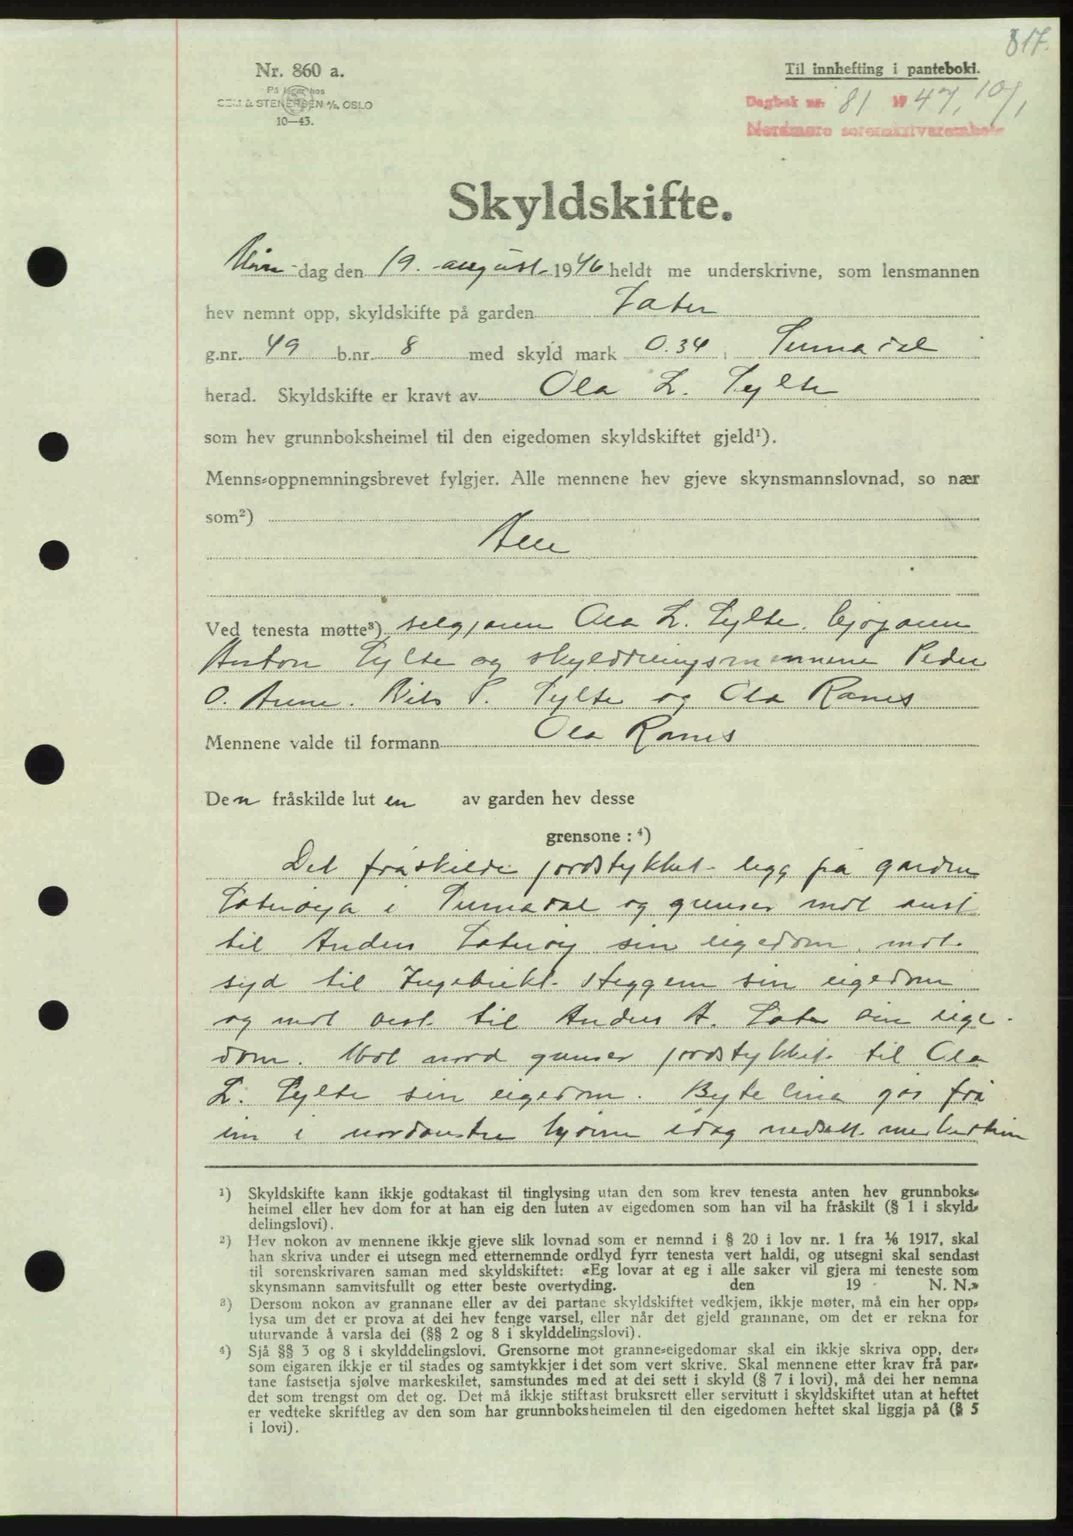 817.
Nr. 860 a.
Til innhefting i panteboki.
På lager hos
SEM & STENERSEN A/S, OSLO
10—43.
Dagbok nr. 81 1947, 10/1
Nordmøre sorenskriverembete
Skyldskifte.
dag den 19. august 1946 heldt me underskrivne, som lensmannen
hev nemnt opp, skyldskifte på garden
g.nr. 49 b.nr. 8 med skyld mark 0.34 i Surnadal
herad. Skyldskifte er kravt av Ola L. Sylte
som hev grunnboksheimel til den eigedomen skyldskiftet gjeld¹).
Menns-oppnemningsbrevet fylgjer. Alle mennene hev gjeve skynsmannslovnad, so nær
som²)
Alle
Ved tenesta møtte³) seljaren Ola L. Sylte. kjøparen
Anton Sylte og skylddelingsmennene Peder
O. Aune. Nils P. Sylte og Ola Ranes
Mennene valde til formann Ola Ranes
Den fråskilde luten av garden hev desse
grensone : ⁴)
Det fråskilde jordstykket ligg på garden
Sæterøya i Surnadal og grenser mot aust
til Anders Sæterøy sin eigedom, mot
syd til Ingebrikt Steggem sin eigedom
og mot vest til Anders A. Sæter sin eige-
dom. Mot nord grenser jordstykket til Ola
L. Sylte sin eigedom. Bytelina går frå
ein i nordaustre hjørne idag nedsatt merkestein
¹) Skyldskifte kann ikkje godtakast til tinglysing utan den som krev tenesta anten hev grunnboks-
heimel eller hev dom for at han eig den luten av eigedomen som han vil ha fråskilt (§ 1 i skyld-
delingslovi).
²) Hev nokon av mennene ikkje gjeve slik lovnad som er nemnd i § 20 i lov nr. 1 fra 1/6 1917, skal
han skriva under ei utsegn med etternemnde ordlyd fyrr tenesta vert haldi, og utsegni skal sendast
til sorenskrivaren saman med skyldskiftet: «Eg lovar at eg i alle saker vil gjera mi teneste som
skynsmann samvitsfullt og etter beste overtyding. den 19 N. N.»
³) Dersom nokon av grannane eller av dei partane skyldskiftet vedkjem, ikkje møter, må ein her opp-
lysa um det er prova at dei hev fenge varsel, eller når det gjeld grannane, om det er rekna for
uturvande å varsla dei (§§ 2 og 8 i skylddelingslovi).
⁴) Sjå §§ 3 og 8 i skylddelingslovi. Grensorne mot granne-eigedomar skal ein ikkje skriva opp, der-
som eigaren ikkje er til stades og samtykkjer i det som vert skrive. Skal mennene etter krav frå par-
tane fastsetja sjølve markeskilet, samstundes med at dei sett i skyld (§ 7 i lovi), må dei her nemna
det som trengst om det og. Det må ikkje stiftast bruksrett eller servitutt i skyldskiftet utan at heftet
er vedteke skriftleg av den som har grunnboksheimelen til den eigedomen heftet skal liggja på (§ 5
i lovi).